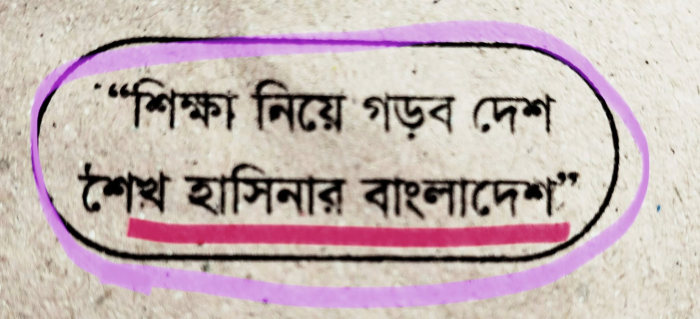 “শিক্ষা নিয়ে গড়ব দেশ
শেখ হাসিনার বাংলাদেশ”